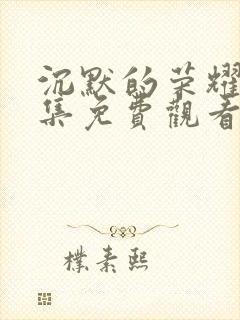 沉默的荣耀
集免費觀看
樸素熙